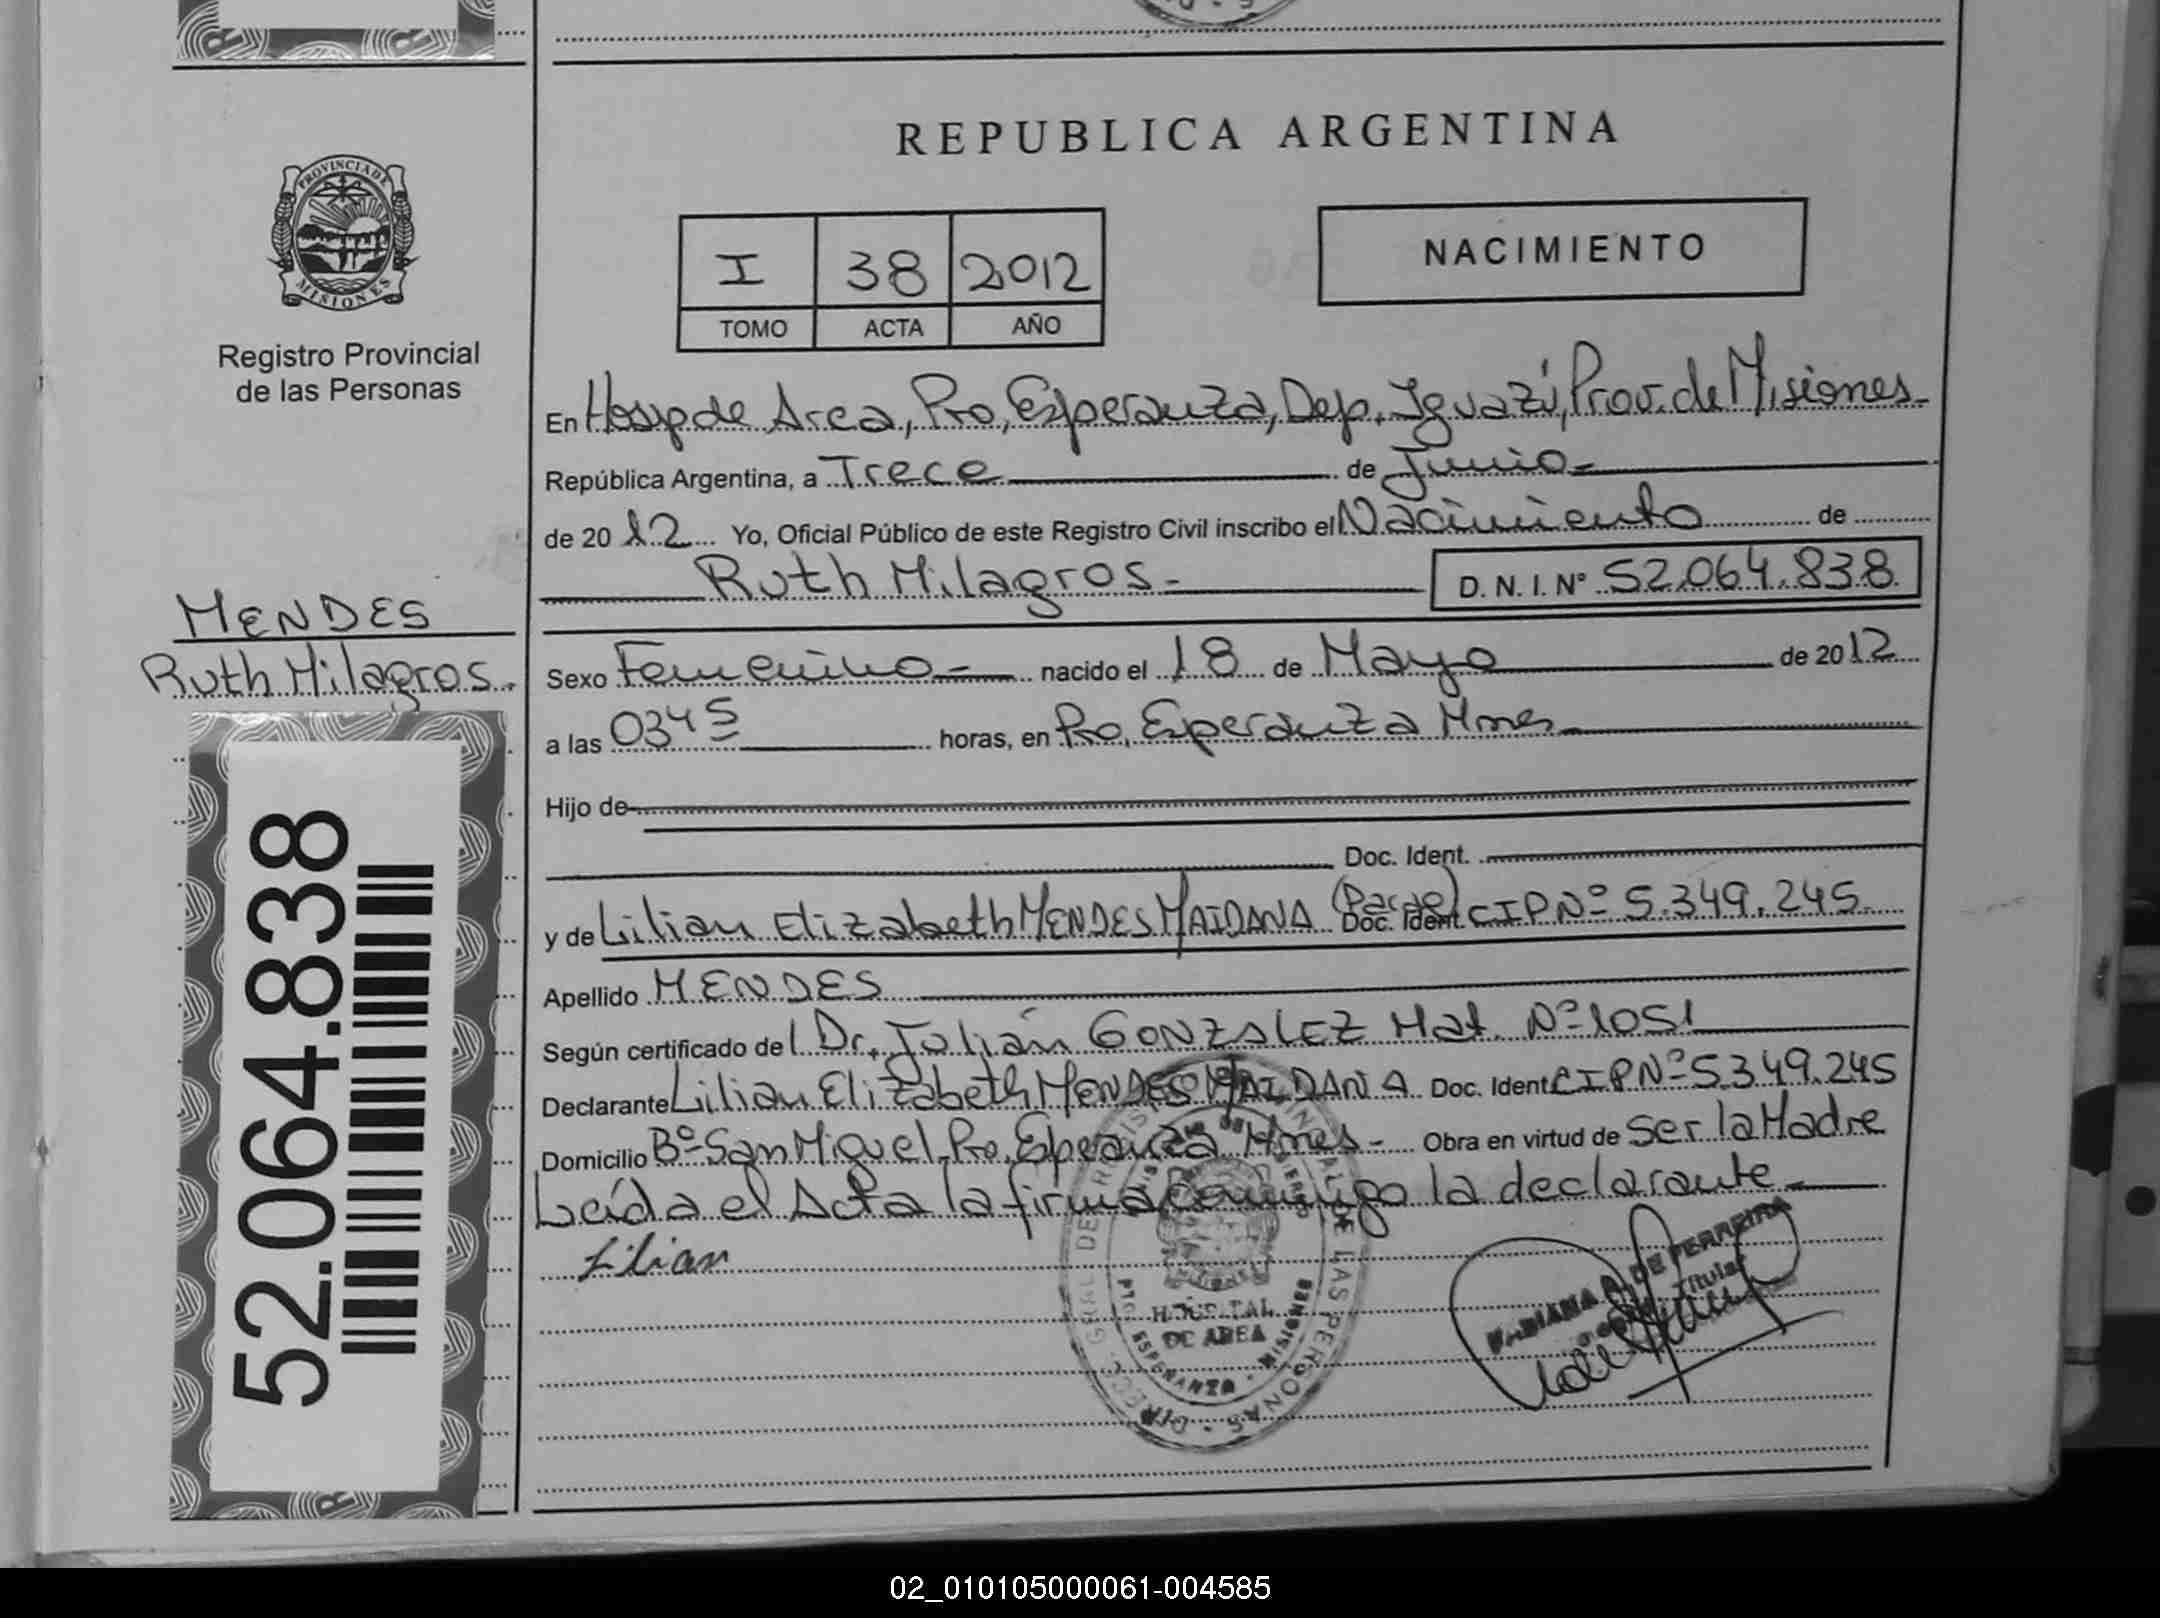 REPUBLICA ARGENTINA
PROVINCIA DE
MISIONES
Registro Provincial
de las Personas
I 38 2012
TOMO ACTA AÑO
NACIMIENTO
En Hosp de Area, Pto, Esperanza, Dep. Iguazú, Prov. de Misiones
República Argentina, a Trece de Junio
de 2012 Yo, Oficial Público de este Registro Civil inscribo el Nacimiento de
Ruth Milagros D.N.I. Nº 52.064.838
MENDES
Ruth Milagros
Sexo Femenino nacido el 18 de Mayo de 2012
a las 0345 horas, en Pto, Esperanza Mnes
Hijo de
Doc. Ident.
y de Lilian Elizabeth MENDES MAIDANA Doc. Ident. CIP Nº 5.349.245
Apellido MENDES
Según certificado del Dr. Julián GONZALEZ Mat. Nº 1051
Declarante Lilian Elizabeth MENDES MAIDANA Doc. Ident CIP Nº 5.349.245
Domicilio Bº San Miguel, Pto, Esperanza Mnes Obra en virtud de ser la Madre
Leída el Acta la firma conmigo la declarante
Lilian
HOSPITAL
DE AREA
ESPERANZA - MISIONES
DE LAS PERSONAS
DE FERREIRA
Titular
52.064.838
02_010105000061-004585